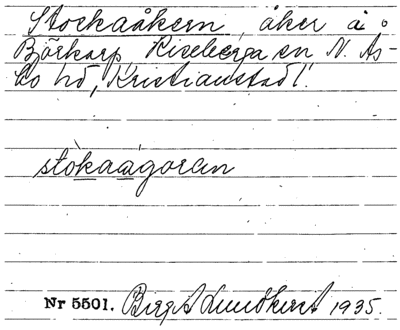 Stockaåkern, åker å
Björkarp, Riseberga sn N. Ås-
bo hd, Kristianstad l.
stòkaágoran
Nr 5501. Birgit Lundkvist 1935.